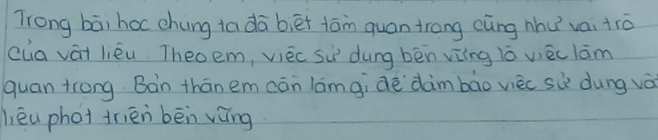 Trong bài học chúng ta đã biết tầm quan trọng cũng như vai trò
của vật liệu Theo em, việc sử dụng bền vững là việc làm
quan trọng Bản thân em cần làm gì để đảm bảo việc sử dụng và
liệu phát triển bền vững